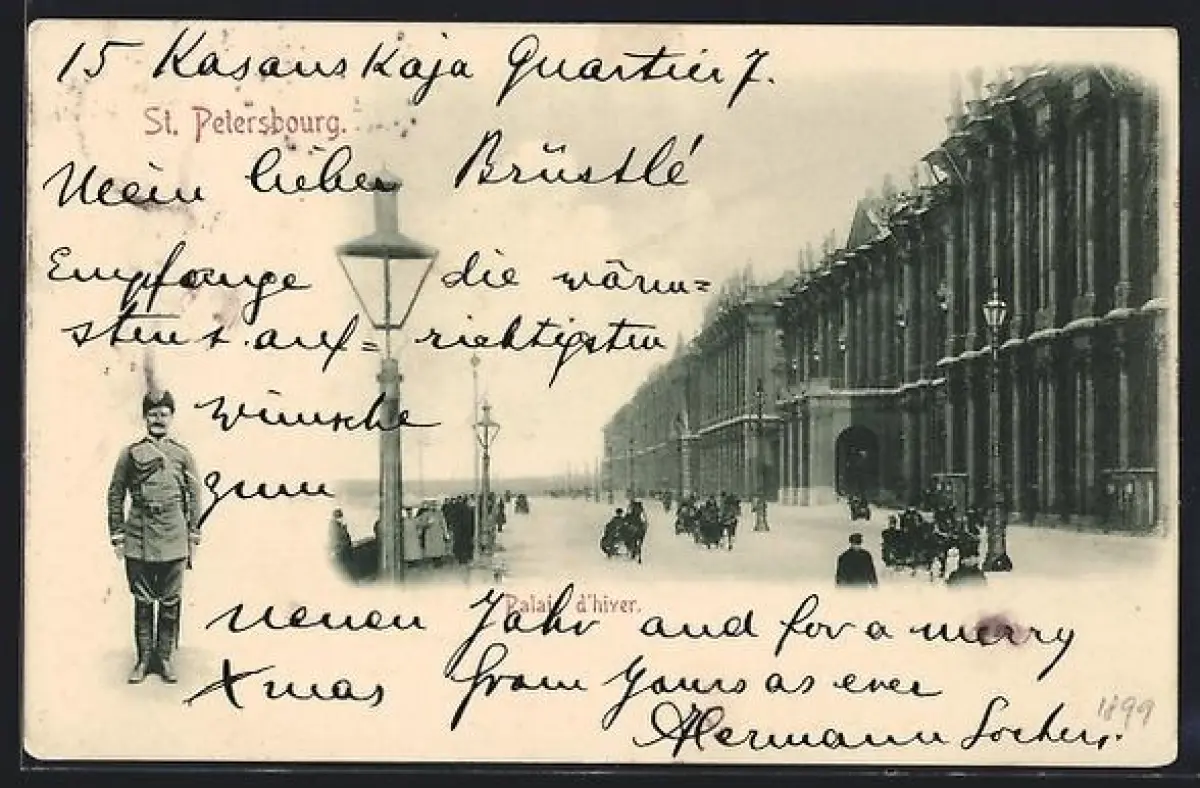 15 Kasanskaja Quartier 7.
St. Petersbourg.
Mein lieber Brüstlé
Empfange die wärm=
sten & auf= richtigsten
wünsche
zum
Palais d'hiver.
neuen Jahr and for a merry
Xmas from Yours as ever
Hermann
1899